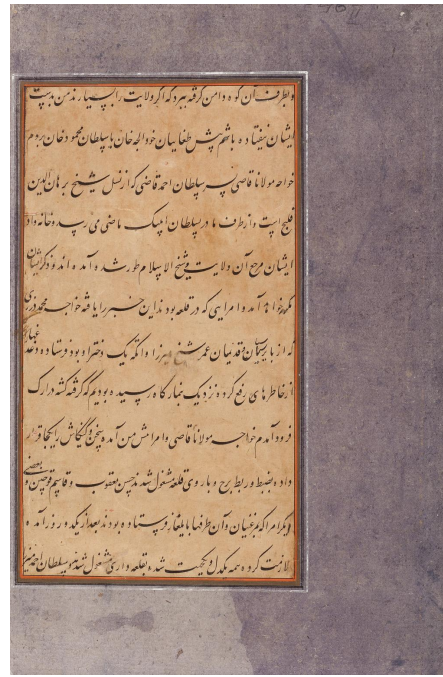 و بطرف آن کوه دامن گرفته ببرد که اگر ولایت را بسپارند من بدست
ایشان نیفتاده باشم پیش طغاییان خود الجه خان یا سلطان محمود خان بروم
خواجه مولانا قاضی پسر سلطان احمد قاضی که از نسل شیخ برهان الدین
قلیج است و از طرف مادر بسلطان ایلیک ماضی می رسد و خانه داده
ایشان مرجع آن ولایت و شیخ الاسلام طور شده آمده اند و ذکر ایشان
مکرر خواهد آمد و امرایی که در قلعه بودند این خبر را یافته خواجه محمد درزی
که از بایریان و قدیمیان عمر شیخ میرزا و اتکه یک دختر او بود فرستاده دغدغه
از خاطرهای رفع کرده نزدیک نمازگاه رسیده بودیم که گرفته گشته در ارک
فرود آمدم خواجه مولانا قاضی و امرا پیش من آمده سخن و کنکاش را یکجا قرار
داده بضبط و ربط برج و باروی قلعه مشغول شدند حسن یعقوب و قاسم قوچین و بعضی
دیگر امرا که بمرغینان و آن طرفها بایلغار فرستاده بودند بعد از یکدو روز آمده
ملازمت کرده همه یکدل و یکجهت شده بقلعه داری مشغول شدند سلطان احمد میرزا